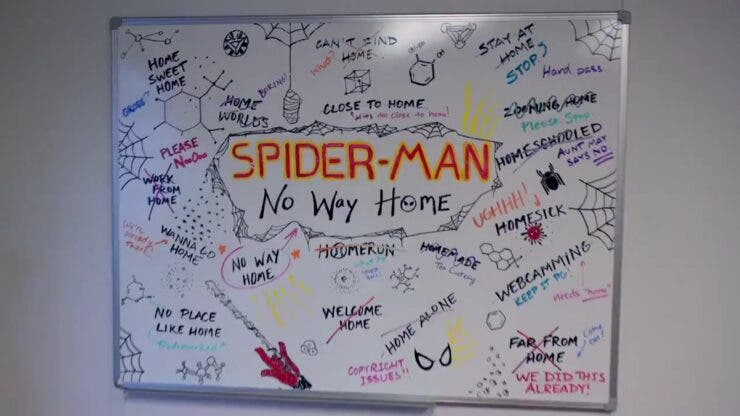 HOME
SWEET
HOME
GROSS!
CAN'T FIND
HOME
What?
STAY AT
HOME
STOP!
Hard pass.
HOME
WORLDS
BORING!
CLOSE TO HOME
Hits too close to home!
ZOOMING HOME
Please Stop
HOMESCHOOLED
AUNT MAY
SAYS NO
PLEASE
NoOOoo
WORK
FROM
HOME
SPIDER-MAN
No Way Home
UGHHH!
HOMESICK
We'll
already
there!
WANNA GO
HOME
NO WAY
HOME
HOOMERUN
HOMEMADE
Too Cutesy
WEBCAMMING
KEEP IT PG!
needs "home"
NO PLACE
LIKE HOME
WELCOME
HOME
HOME ALONE
COPYRIGHT
ISSUES!!
FAR FROM
HOME
WE DID THIS
ALREADY!